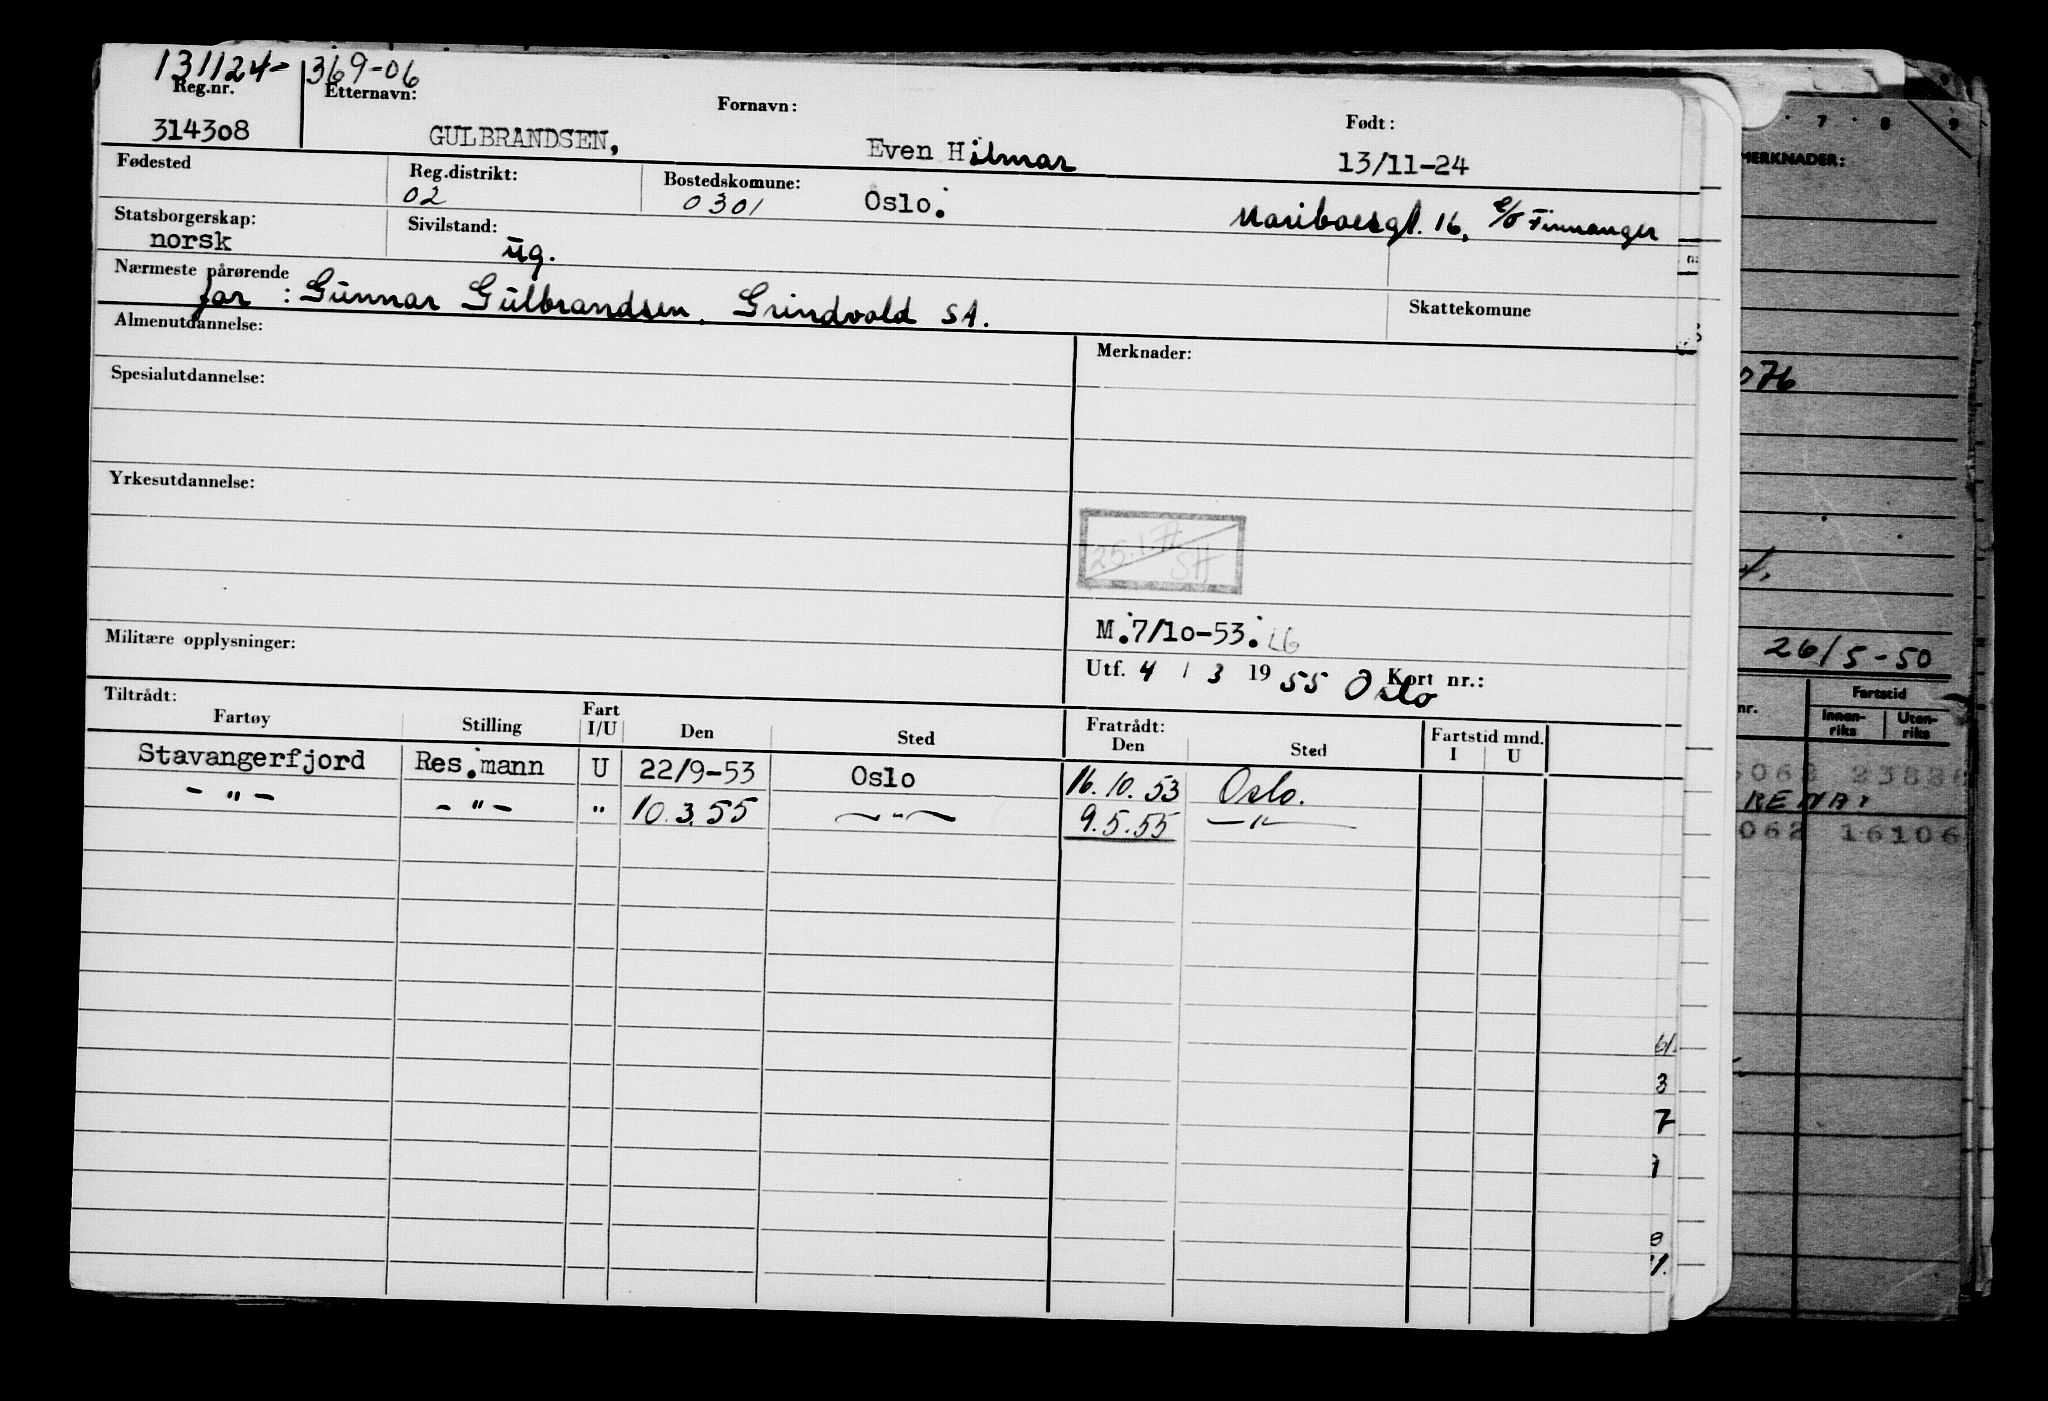 131124- 369-06
Reg.nr. Etternavn: Fornavn: Født:
314308 GULBRANDSEN, Even Hilmar 13/11-24
Fødested Reg.distrikt: Bostedskomune:
02 0301 Oslo. Mariboesgt. 16, c/o Finnanger
Statsborgerskap: Sivilstand:
norsk ug.
Nærmeste pårørende
far : Gunnar Gulbrandsen, Grindvold SA. Skattekomune
Almenutdannelse: Merknader:
Spesialutdannelse:
Yrkesutdannelse:
SH
Militære opplysninger: M.7/10-53.
Utf. 4 / 3 1955 Oslo Kort nr.:
Tiltrådt: Fratrådt:
Fartøy Stilling Fart I/U Den Sted Den Sted Fartstid mnd. I U
Stavangerfjord Res.mann U 22/9-53 Oslo 16.10.53 Oslo.
- " - - " - " 10.3.55 - " - 9.5.55 - " -
7 8 9
MERKNADER:
076
26/5-50
nr. Fartstid
Innen-riks Uten-riks
062 16106